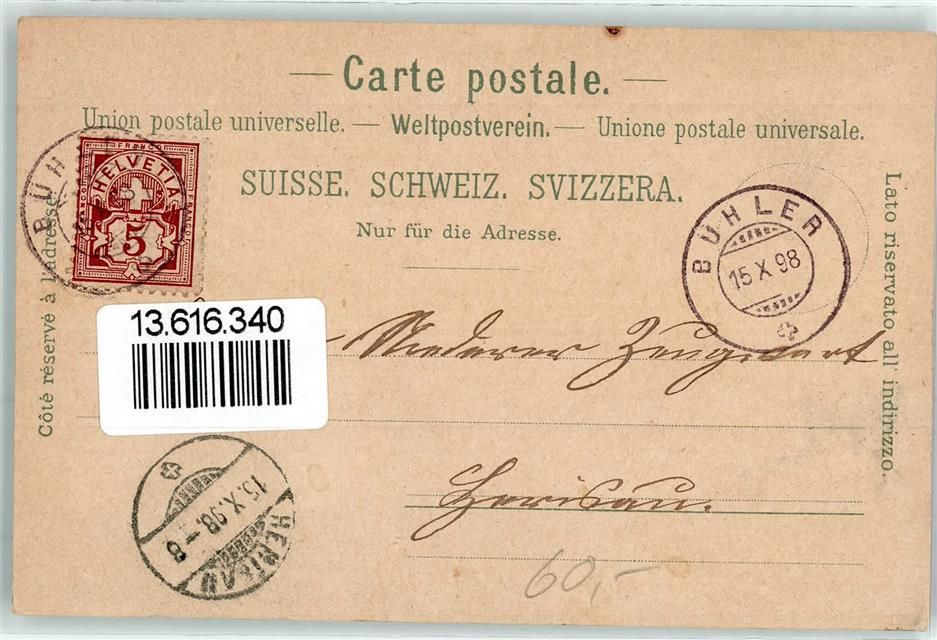 Carte postale.
Union postale universelle. — Weltpostverein. — Unione postale universale.
SUISSE. SCHWEIZ. SVIZZERA.
Nur für die Adresse.
Côté réservé à l'adresse.
Lato riservato all' indirizzo.
FRANCO
HELVETIA
5
BÜH
BÜHLER
15 X 98
13.616.340
Niederer
Herisau.
15.X.98.-8
HERISAU
60,-